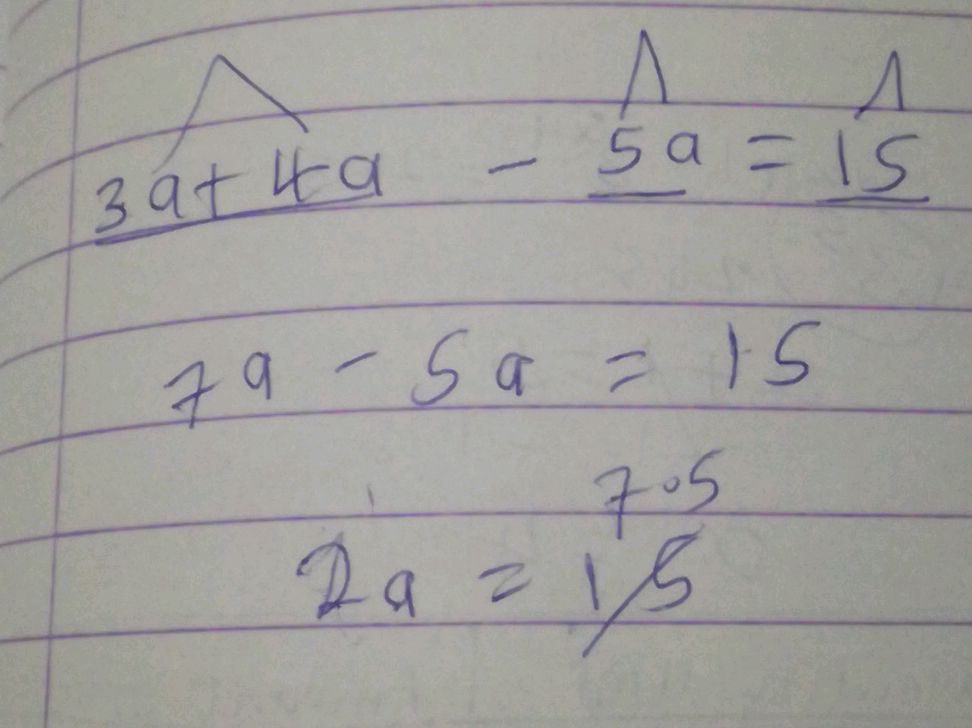 3a+4a - 5a = 15
7a - 5a = 15
7.5
2a = 15